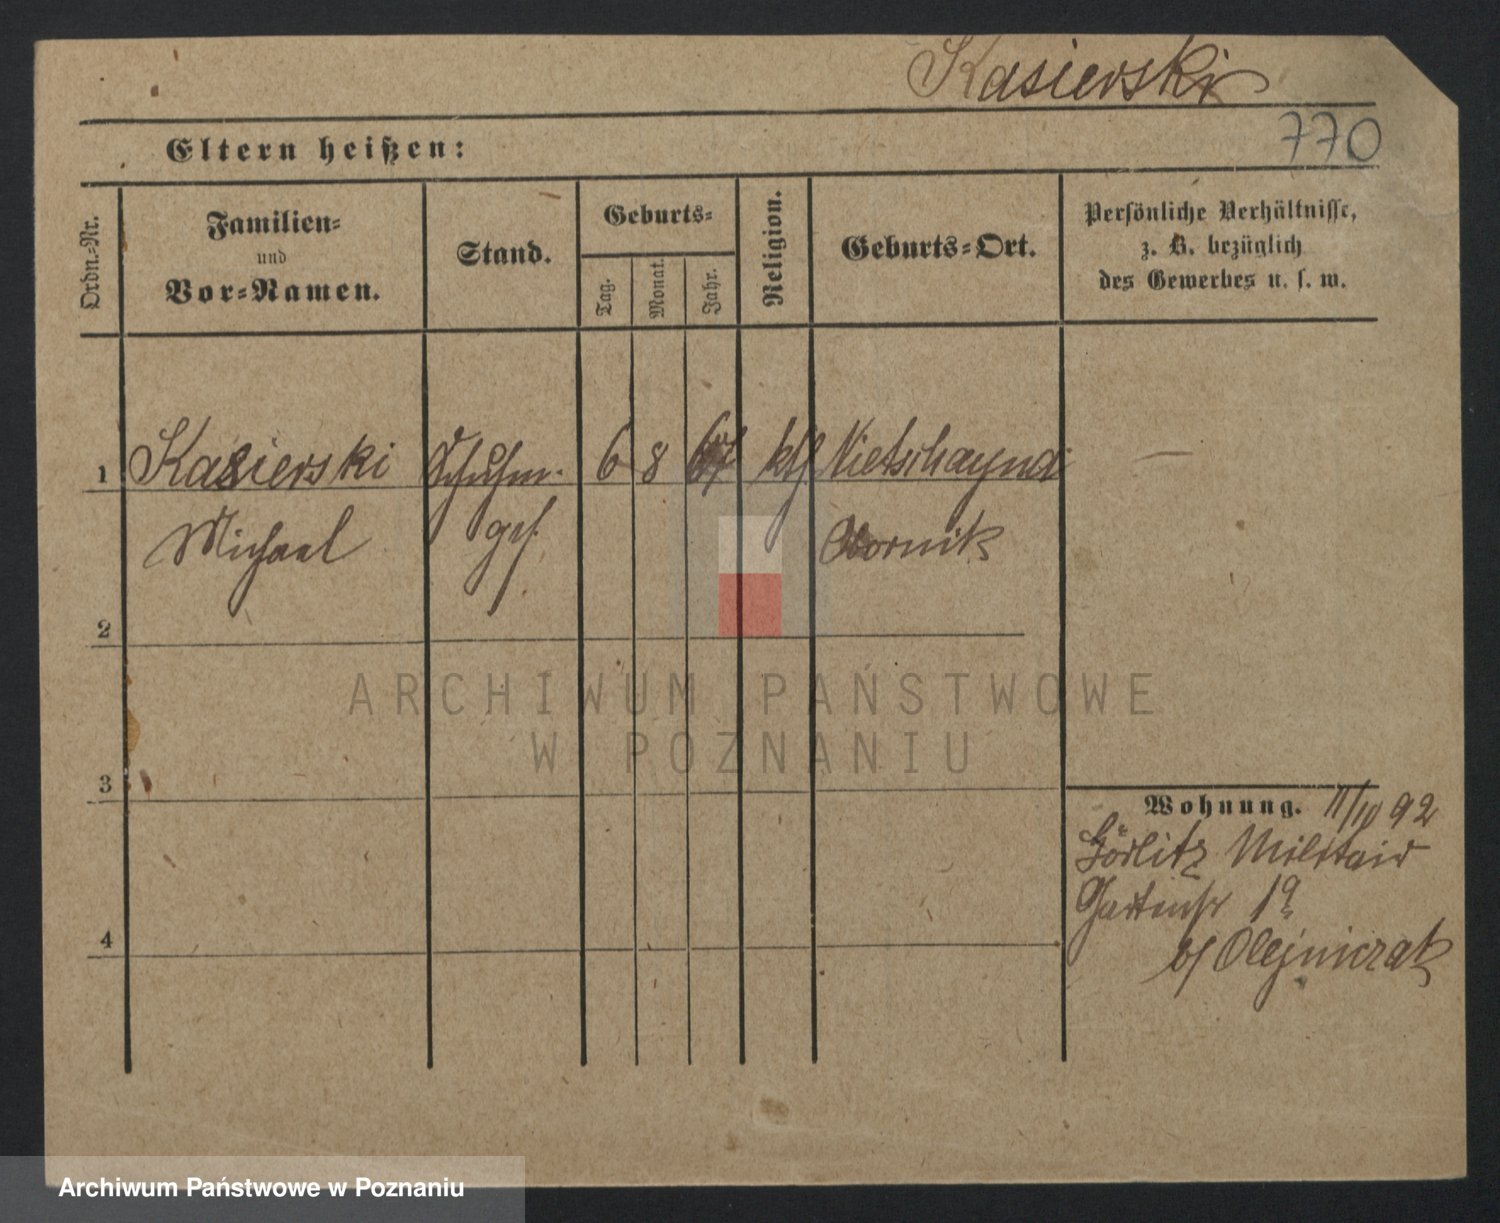 Kasierski
770
Eltern heißen:
Ordn.-Nr.
Familien-
und
Vor-Namen.
Stand.
Geburts-
Tag.
Monat.
Jahr.
Religion.
Geburts-Ort.
Persönliche Verhältnisse,
z. B. bezüglich
des Gewerbes u. s. w.
1 Kasierski Schuhm. 6 8 67 kth
Michael ges. Obornik
2
ARCHIWUM PAŃSTWOWE
W POZNANIU
3
Wohnung. 11/10 92
Görlitz Militair
Gartenstr 19
b/ Olejniczak
4
Archiwum Państwowe w Poznaniu